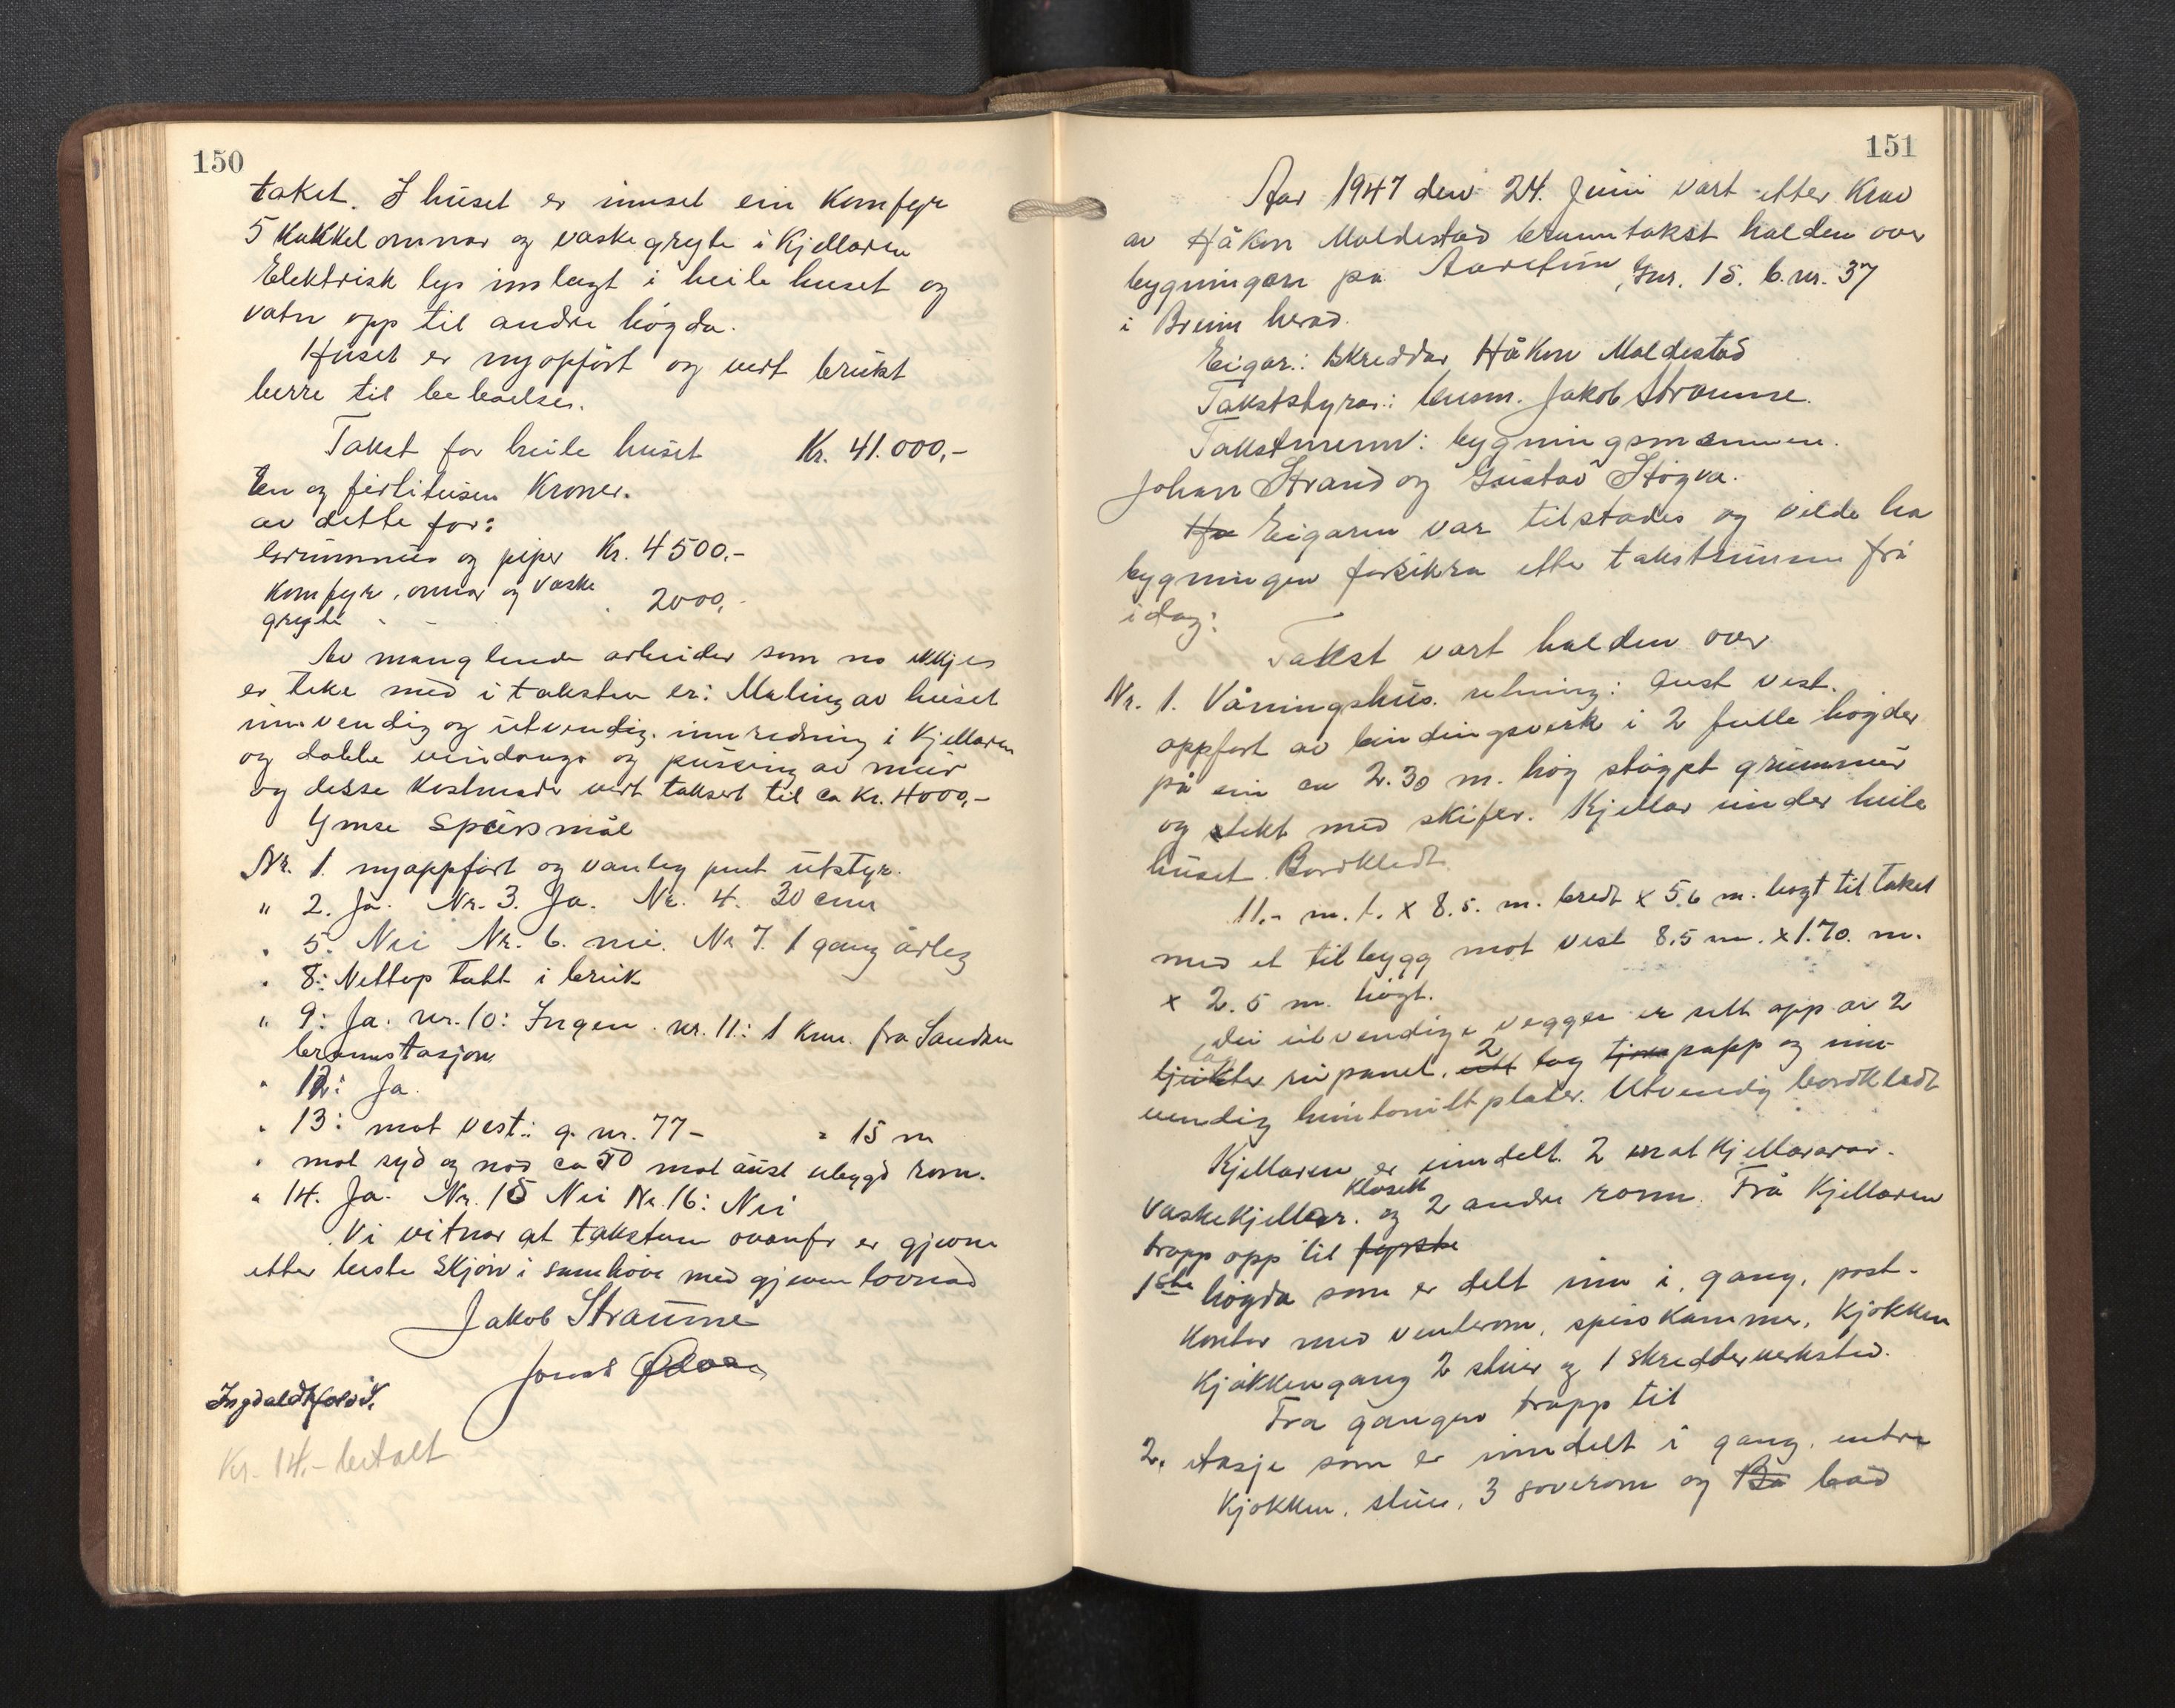 150
taket. I huset er innset ein Komfyr
5 Kakkelomnar og vaskegryte i Kjellaren
Elektrisk lys innlagt i heile huset og
vatn opp til andre høgda.
Huset er nyoppført og vert brukt
berre til beboelse.
Takst for heile huset Kr. 41.000,-
En og førtitusen Kroner.
av dette for:
Grunnmur og piper Kr. 4500.-
Komfyr, omnar og vaske
gryte - - 2000,-
Av manglende arbeider som no ikkje
er teke med i taksten er: Maling av huset
innvendig og utvendig. innredning i Kjellaren
og dobbe vindauge og pussing av mur
og desse kostnader vert taksert til ca Kr. 4000,-
Ymse Spørsmål
Nr. 1. nyoppført og vanleg pent utstyr.
" 2. Ja. Nr. 3. Ja. Nr. 4. 30 cm
" 5. Nei Nr. 6. nei. Nr 7. 1 gang årleg
" 8: Nettop tatt i bruk
" 9: Ja. nr. 10: Ingen. nr. 11: 1 km. fra Sandane
brannstasjon
" 12: Ja.
" 13: mot vest: g. nr. 77 - = 15 m
" mot syd og nord ca 50 mot aust ubygd rom.
" 14. Ja. Nr. 15 Nei Nr. 16: Nei
Vi vitnar at takstene ovanfor er gjevne
etter beste Skjøn i samhøve med gjeven lovnad
Jakob Straume
Jonas
Kr. 14,- betalt
151
Aar 1947 den 24. Juni vart etter Krav
av Håkon Maldestad branntakst halden over
bygningen på Aaretun, Gnr. 15. b.nr. 37
i Breim herad.
Eigar: Skreddar Håkon Maldestad
Takststyrar: lensm. Jakob Straume.
Takstmenn: bygningsmennene.
Johan Strand og Gustav Støyva.
Ha Eigaren var tilstades og vilde ha
bygningen forsikra etter takstsummen frå
idag:
Takst vart halden over
Nr. 1. Våningshus. retning: Aust vest.
oppført av bindingsverk i 2 fulle høgder
på ein ca 2.30 m. høg støypt grunnmur
og tekt med skifer. Kjellar under heile
huset. Bordkledt
11.- m. l. x 8.5. m. bredt x 5.6 m. høgt til taket
med et tilbygg mot vest 8.5 m. x 1.70. m.
x 2.5 m. høgt.
Dei utvendige vegger er sett opp av 2
lag
tjukter rupanel. ett 2 lag tjære papp og inn-
vendig huntonittplater. Utvendig bordkledt
Kjellaren er inndelt 2 matkjellarar.
Vaskekjellar. Klosett og 2 andre rom. Frå Kjellaren
trapp opp til fyrste
1ste høgda som er delt inn i, gang, post-
kontor med venterom, spisskammer, Kjøkken
Kjøkkengang 2 stuer og 1 skredderverksted.
Fra gangen trapp til
2. etasje som er inndelt i gang, entre
Kjøkken, stue, 3 soverom og Ba bad